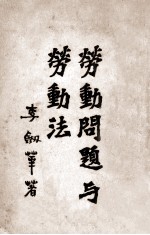 勞動問題与
勞動法
李劔華著